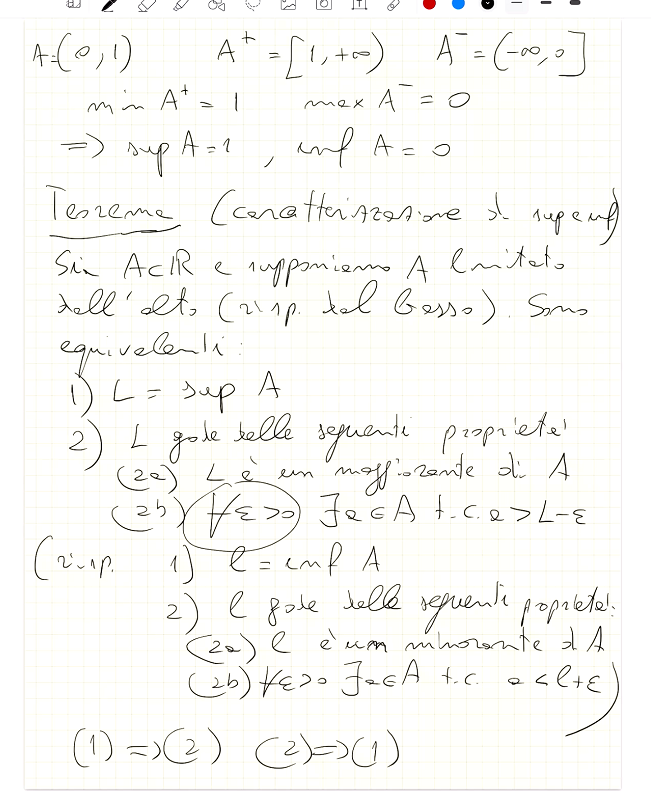 A=(0,1) A⁺=[1,+∞) A⁻=(-∞,0]
min A⁺=1 max A⁻=0
=> sup A=1, inf A=0
Teorema (caratterizzazione di sup e inf)
Sia A⊂ℝ e supponiamo A limitato
dall'alto (risp. dal basso). Sono
equivalenti:
1) L = sup A
2) L gode delle seguenti proprietà
(2a) L è un maggiorante di A
(2b) ∀ε>0 ∃a∈A t.c. a>L-ε
(risp. 1) l=inf A
2) l gode delle seguenti proprietà:
(2a) l è un minorante di A
(2b) ∀ε>0 ∃a∈A t.c. a<l+ε)
(1)=>(2) (2)=>(1)